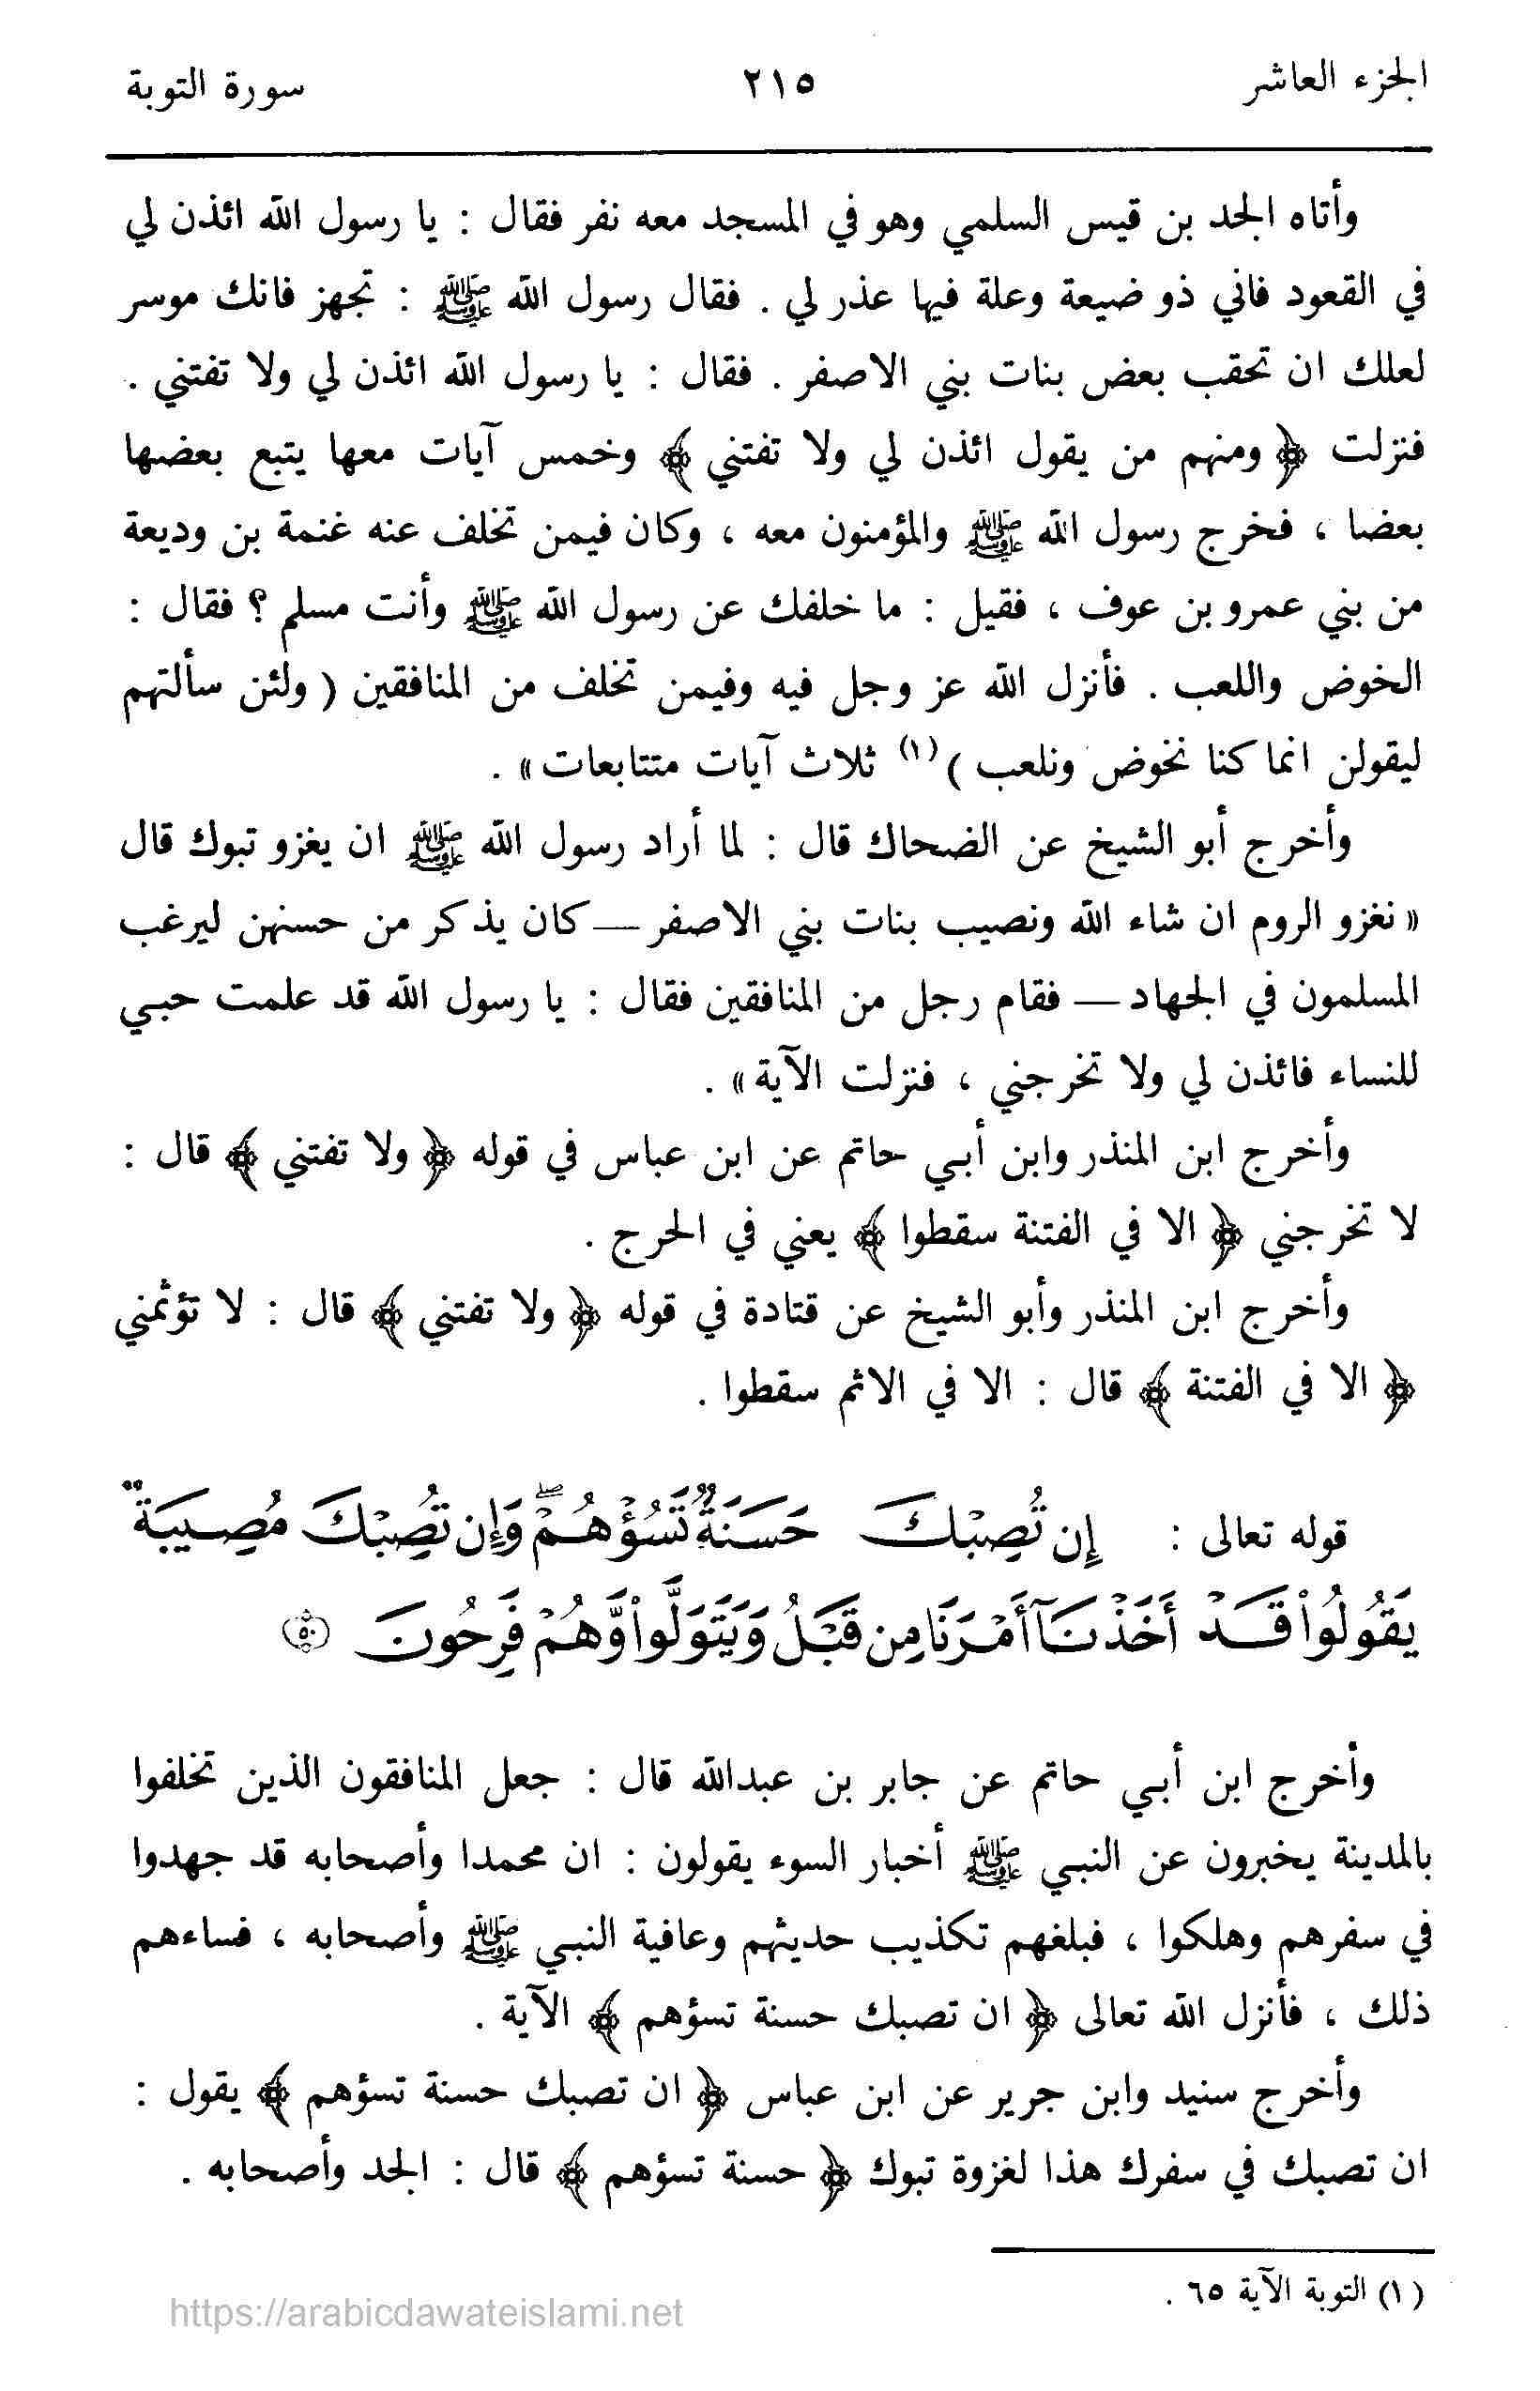 الجزء العاشر ٢١٥ سورة التوبة
وأتاه الجد بن قيس السلمي وهو في المسجد معه نفر فقال : يا رسول الله ائذن لي
في القعود فاني ذو ضيعة وعلة فيها عذر لي . فقال رسول الله ﷺ : تجهز فانك موسر
لعلك ان تحقب بعض بنات بني الاصفر . فقال : يا رسول الله ائذن لي ولا تفتني .
فنزلت ﴿ ومنهم من يقول ائذن لي ولا تفتني ﴾ وخمس آيات معها يتبع بعضها
بعضا ، فخرج رسول الله ﷺ والمؤمنون معه ، وكان فيمن تخلف عنه غنمة بن وديعة
من بني عمرو بن عوف ، فقيل : ما خلفك عن رسول الله ﷺ وأنت مسلم ؟ فقال :
الخوض واللعب . فأنزل الله عز وجل فيه وفيمن تخلف من المنافقين ( ولئن سألتهم
ليقولن انما كنا نخوض ونلعب ) (١) ثلاث آيات متتابعات » .
وأخرج أبو الشيخ عن الضحاك قال : لما أراد رسول الله ﷺ ان يغزو تبوك قال
« نغزو الروم ان شاء الله ونصيب بنات بني الاصفر — كان يذكر من حسنهن ليرغب
المسلمون في الجهاد — فقام رجل من المنافقين فقال : يا رسول الله قد علمت حبي
للنساء فائذن لي ولا تخرجني ، فنزلت الآية » .
وأخرج ابن المنذر وابن أبي حاتم عن ابن عباس في قوله ﴿ ولا تفتني ﴾ قال :
لا تخرجني ﴿ الا في الفتنة سقطوا ﴾ يعني في الحرج .
وأخرج ابن المنذر وأبو الشيخ عن قتادة في قوله ﴿ ولا تفتني ﴾ قال : لا تؤثمني
﴿ الا في الفتنة ﴾ قال : الا في الاثم سقطوا .
قوله تعالى : إِن تُصِبْكَ حَسَنَةٌ تَسُؤْهُمْ ۖ وَإِن تُصِبْكَ مُصِيبَةٌ
يَقُولُوا۟ قَدْ أَخَذْنَآ أَمْرَنَا مِن قَبْلُ وَيَتَوَلَّوا۟ وَّهُمْ فَرِحُونَ ٥٠
وأخرج ابن أبي حاتم عن جابر بن عبدالله قال : جعل المنافقون الذين تخلفوا
بالمدينة يخبرون عن النبي ﷺ أخبار السوء يقولون : ان محمدا وأصحابه قد جهدوا
في سفرهم وهلكوا ، فبلغهم تكذيب حديثهم وعافية النبي ﷺ وأصحابه ، فساءهم
ذلك ، فأنزل الله تعالى ﴿ ان تصبك حسنة تسؤهم ﴾ الآية .
وأخرج سنيد وابن جرير عن ابن عباس ﴿ ان تصبك حسنة تسؤهم ﴾ يقول :
ان تصبك في سفرك هذا لغزوة تبوك ﴿ حسنة تسؤهم ﴾ قال : الجد وأصحابه .
(١) التوبة الآية ٦٥ .
https://arabicdawateislami.net